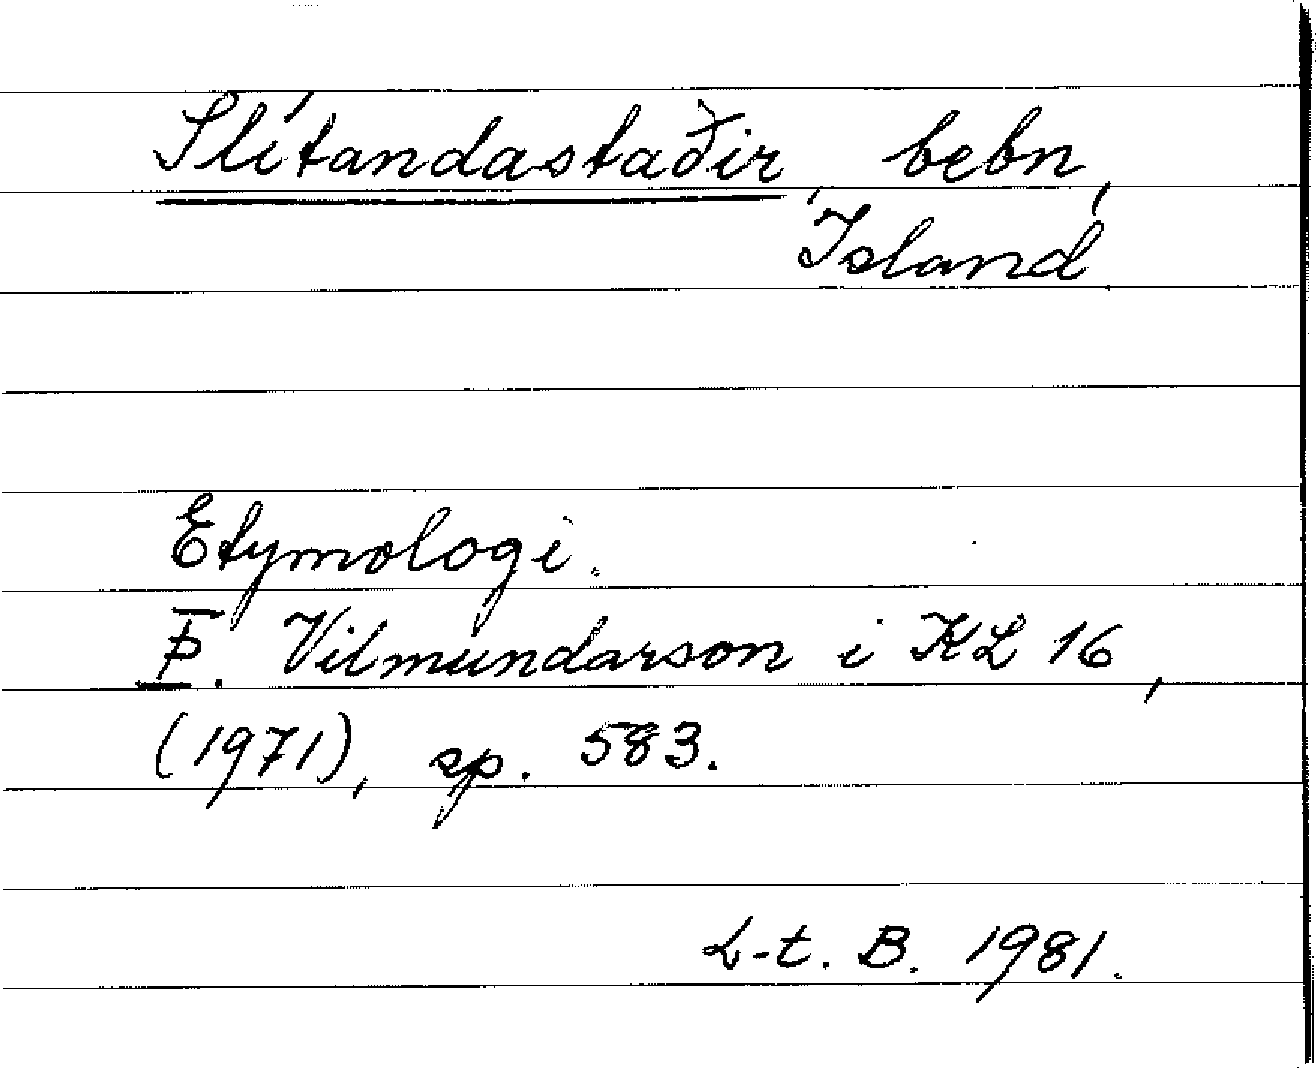 Slítandastaðir, bebn,
Ísland.
Etymologi.
Þ. Vilmundarson i KL 16,
(1971), sp. 583.
L-t. B. 1981.